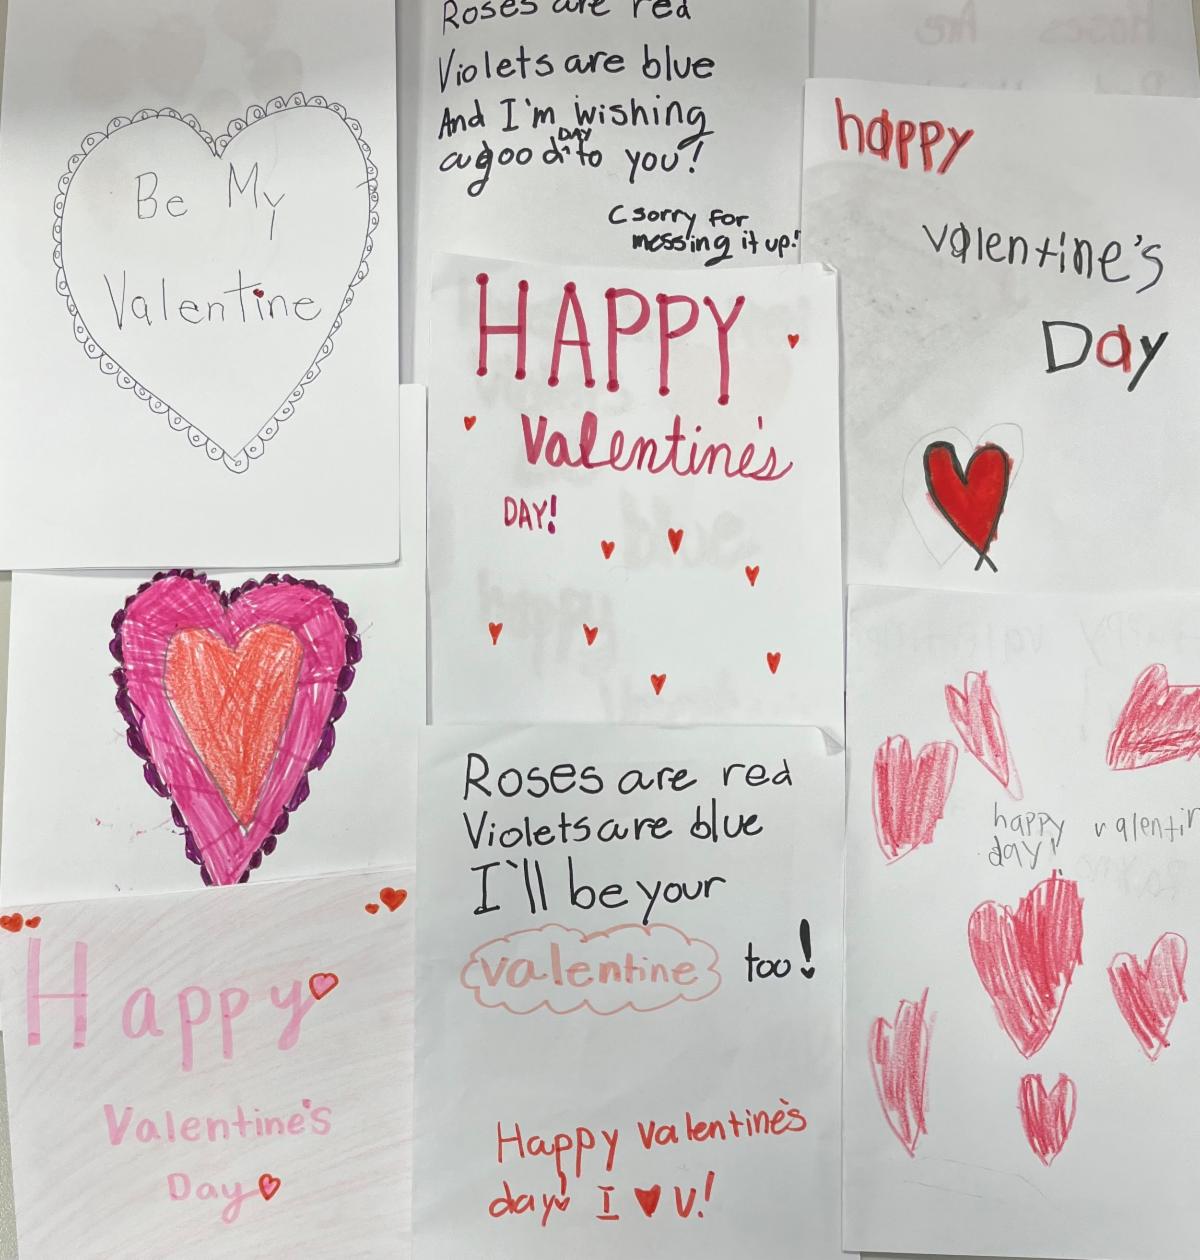 Be My
Valentine
Roses are red
Violets are blue
And I'm wishing
a good DAY to you!
(sorry for
messing it up!
happy
valentine's
Day
HAPPY
Valentine's
DAY!
Happy
Valentine's
Day
Roses are red
Violets are blue
I'll be your
valentine too!
Happy Valentine's
day! I ♥ U!
happy valentin
day!